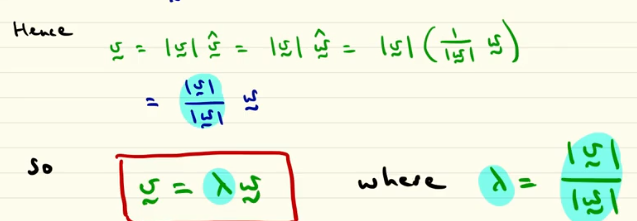 Hence
v̰ = |v̰| v̰̂ = |v̰| ŵ̰ = |v̰| (1/|w̰| w̰)
= |v̰|/|w̰| w̰
so v̰ = λ w̰ where λ = |v̰|/|w̰|